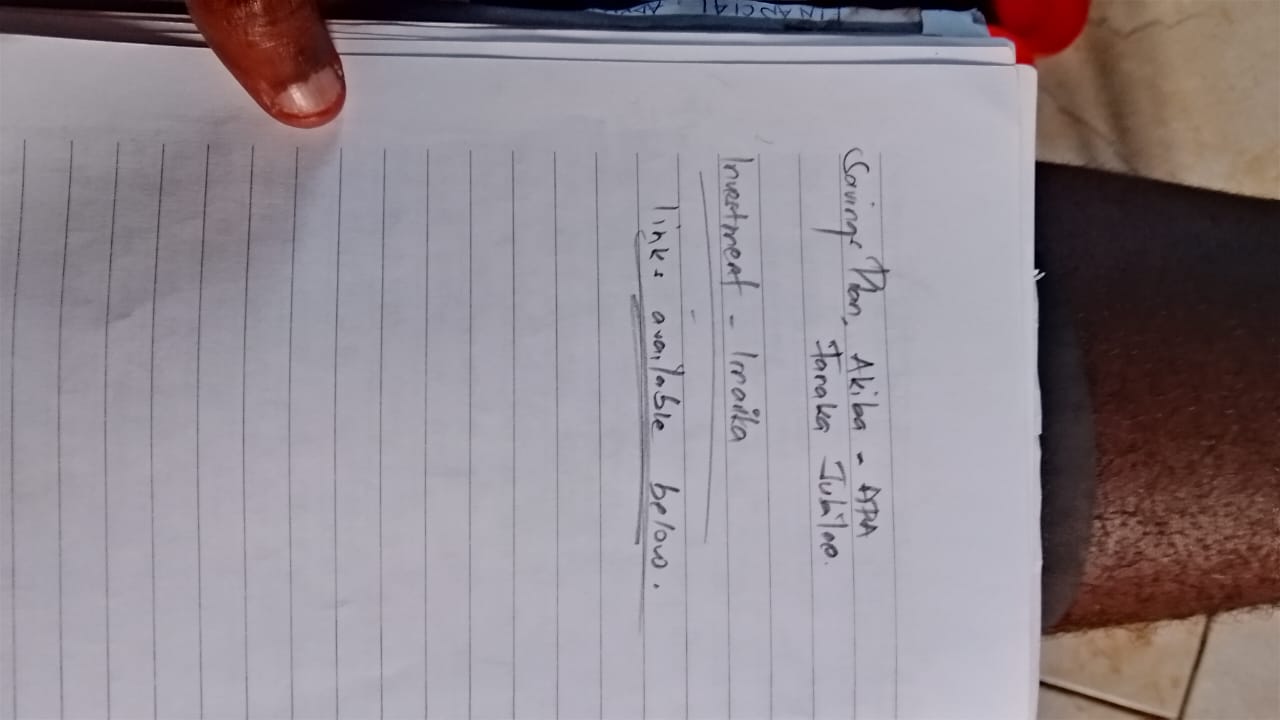 Savings Plan, Akiba - APA
Fanaka Jubilee.
Investment - Imarika
links available below.
FINANCIAL